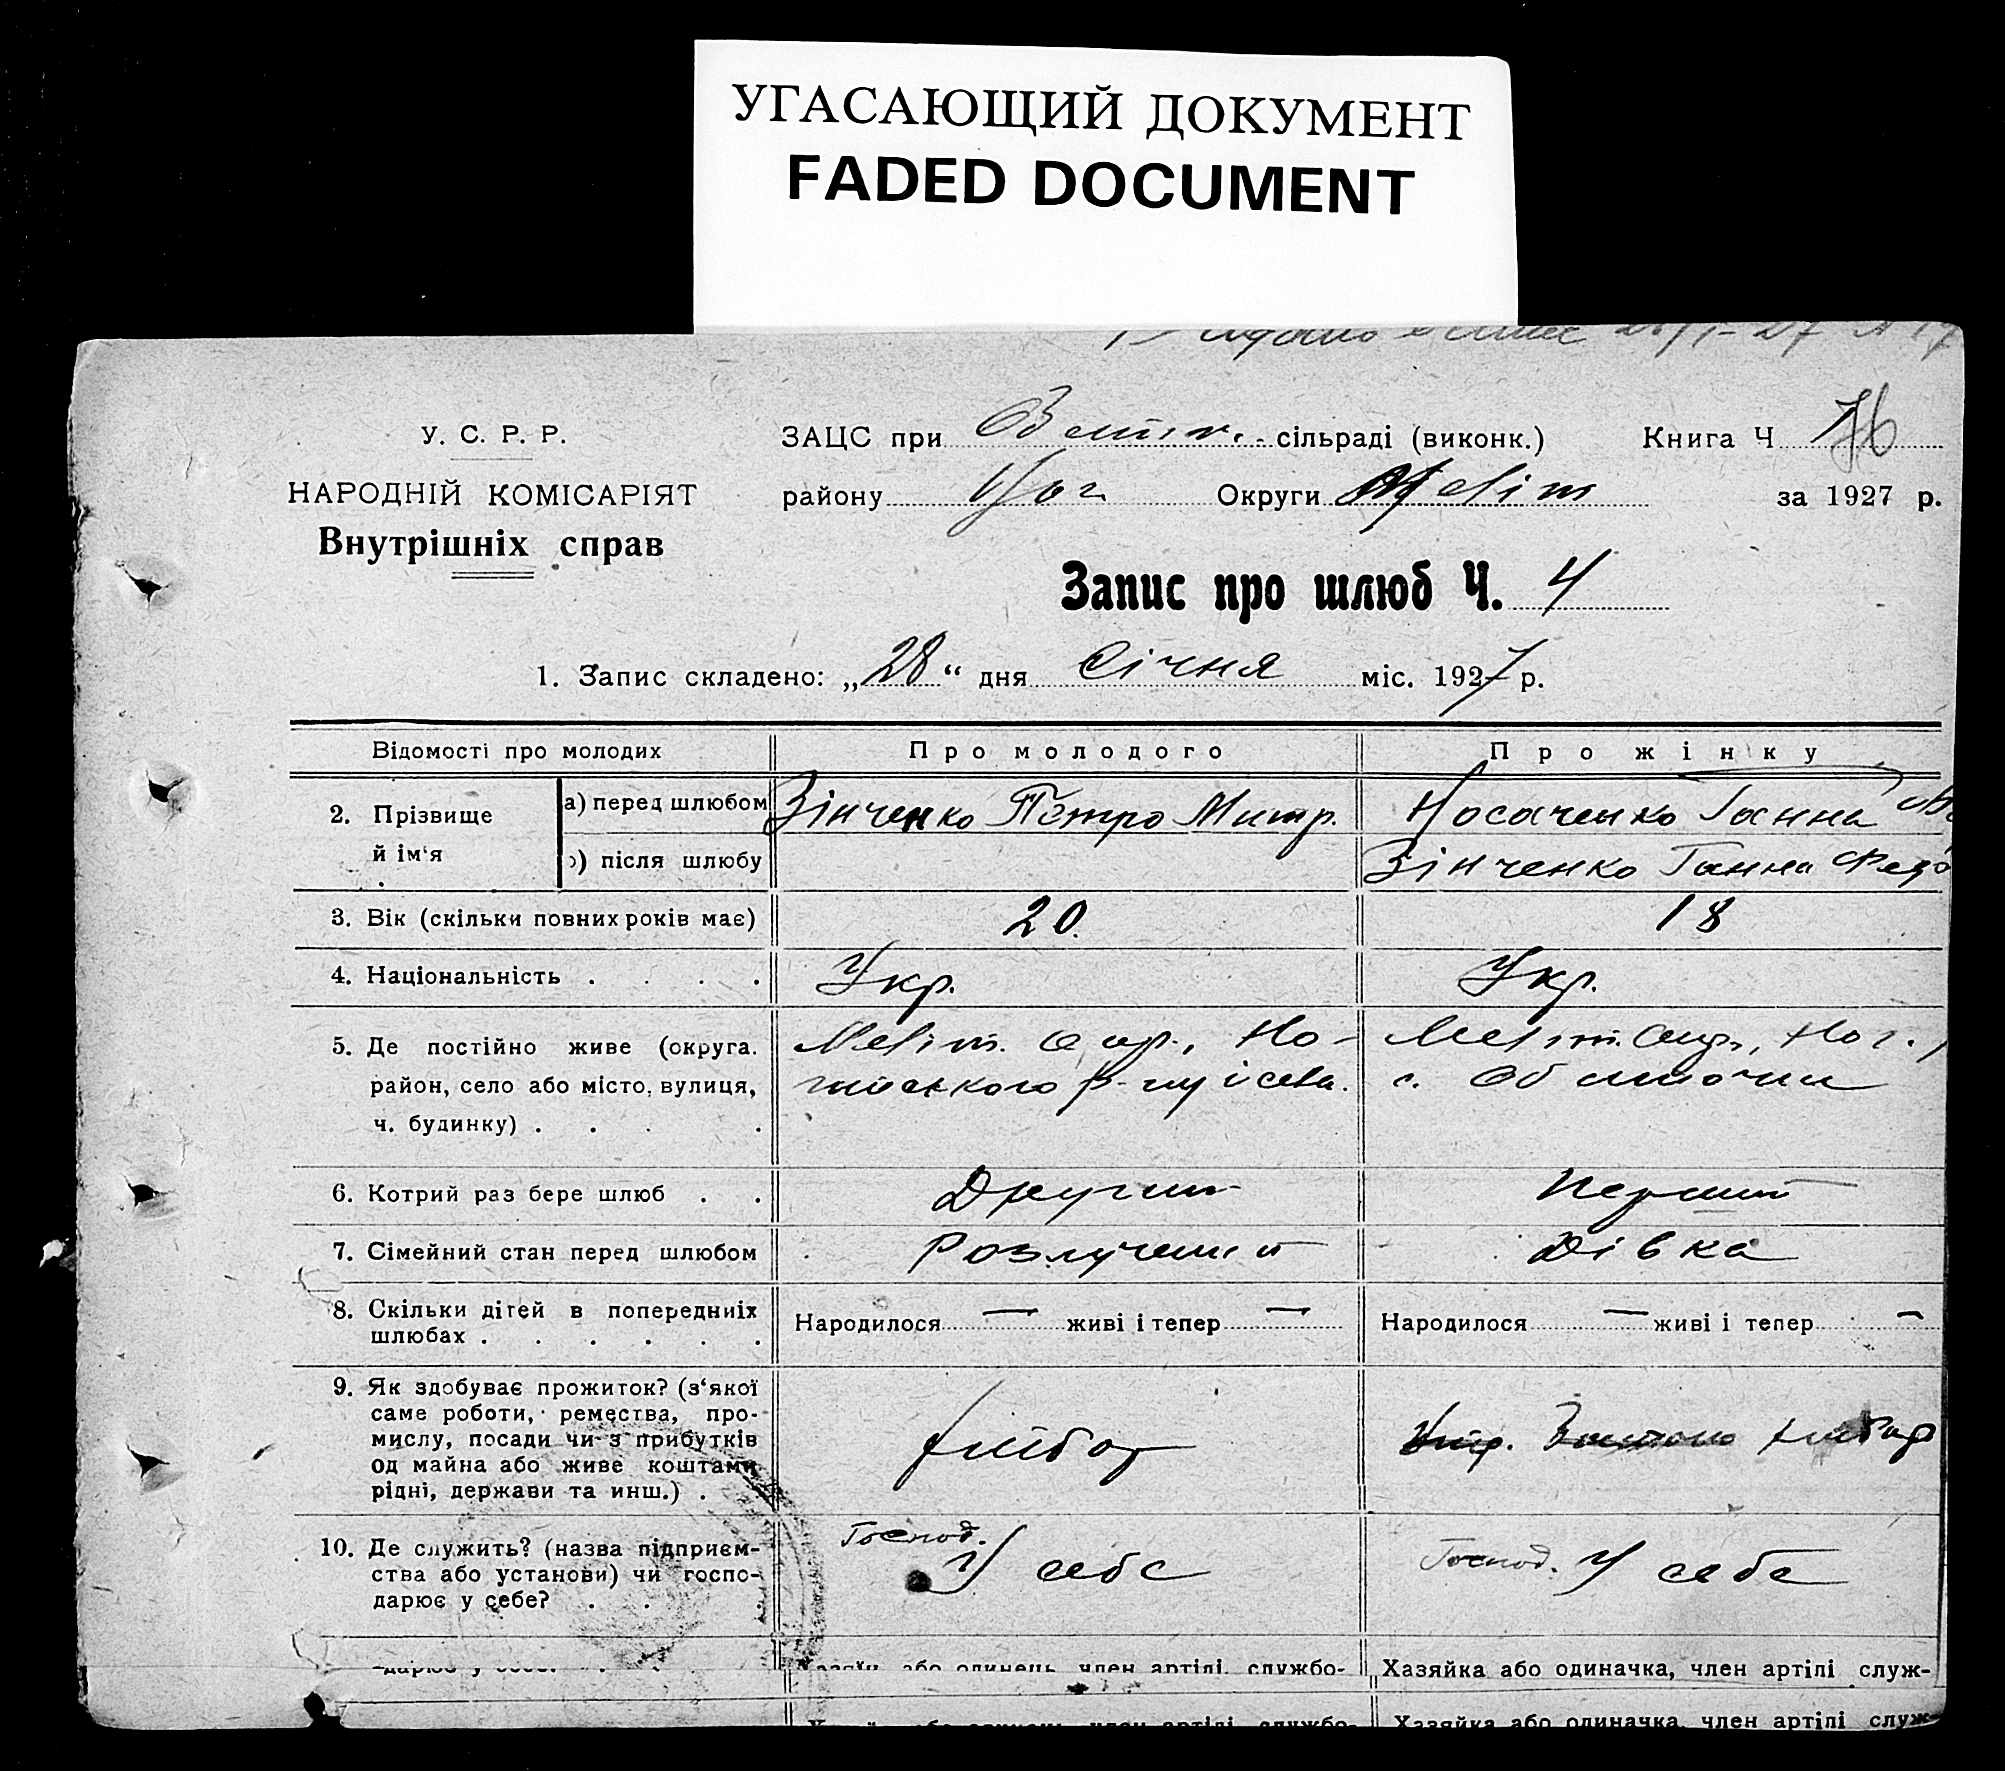 УГАСАЮЩИЙ ДОКУМЕНТ
FADED DOCUMENT
У. С. Р. Р.
НАРОДНІЙ КОМІСАРІЯТ
Внутрішніх справ
ЗАЦС при сільраді (виконк.) Книга Ч
району Ног Округи Меліт за 1927 р.
Запис про шлюб Ч. 4
1. Запис складено: „28“ дня Січня міс. 1927 р.
Відомості про молодих Про молодого Про жінку
2. Прізвище й ім‘я а) перед шлюбом Зінченко Петро Митр. Носаченко Ганна
б) після шлюбу Зінченко Ганна Федо
3. Вік (скільки повних років має) 20. 18
4. Національність . . . . Укр. Укр.
5. Де постійно живе (округа. Меліт. Окр., Но- Меліт. Окр., Ног.,
район, село або місто, вулиця, гайського р-ну с. Обиточни
ч. будинку) . . . .
6. Котрий раз бере шлюб . . Другий Перший
7. Сімейний стан перед шлюбом Розлучений Дівка
8. Скільки дітей в попередниіх Народилося — живі і тепер — Народилося — живі і тепер —
шлюбах . . . . . .
9. Як здобуває прожиток? (з‘якої
саме роботи, ремества, про-
мислу, посади чи з прибутків хлібор хлібор
од майна або живе коштами
рідні, держави та инш.) .
10. Де служить? (назва підприєм- Господ. У себе Господ. У себе
ства або установи) чи госпо-
дарює у себе? . . .
-дарює у себе? . .
Хазяїн або одинець, член артілі, службо- Хазяйка або одиначка, член артілі служ-
Хазяїн або одинець, член артілі, службо- Хазяйка або одиначка, член артілі служ-